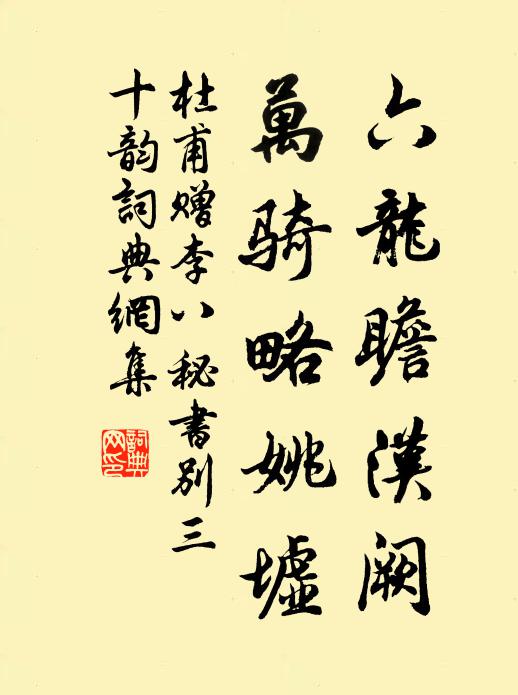 六龍瞻漢闕
萬骑略姚墟
杜甫赠李八秘書别三
十韵詞典網集
詞典网印